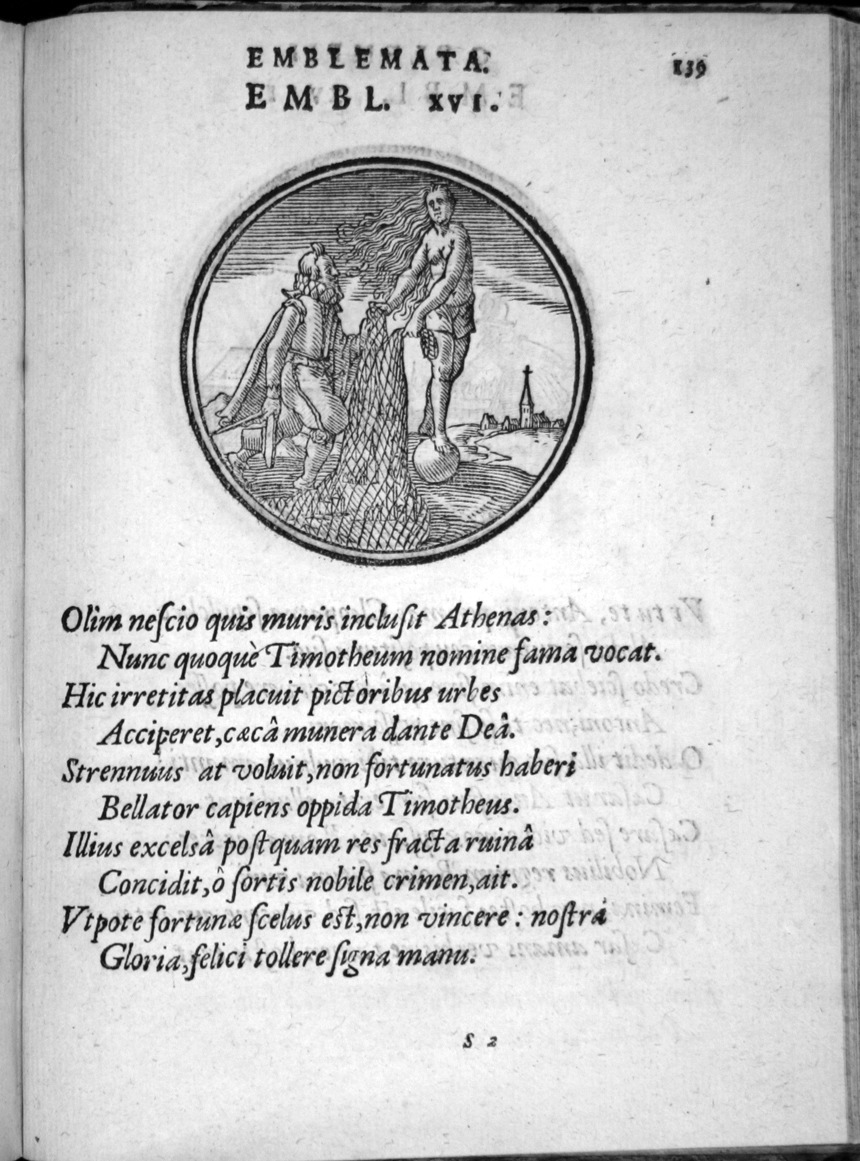 EMBLEMATA. 139
EMBL. XVI.
Olim neſcio quis muris incluſit Athenas:
Nunc quoque Timotheum nomine fama vocat.
Hic irretitas placuit pictoribus urbes
Acciperet, cæcâ munera dante Deâ.
Strennuus at voluit, non fortunatus haberi
Bellator capiens oppida Timotheus.
Illius excelsâ poſtquam res fracta ruinâ
Concidit, ô ſortis nobile crimen, ait.
Vtpote fortunæ ſcelus eſt, non vincere: noſtra
Gloria, felici tollere ſigna manu.
S 2